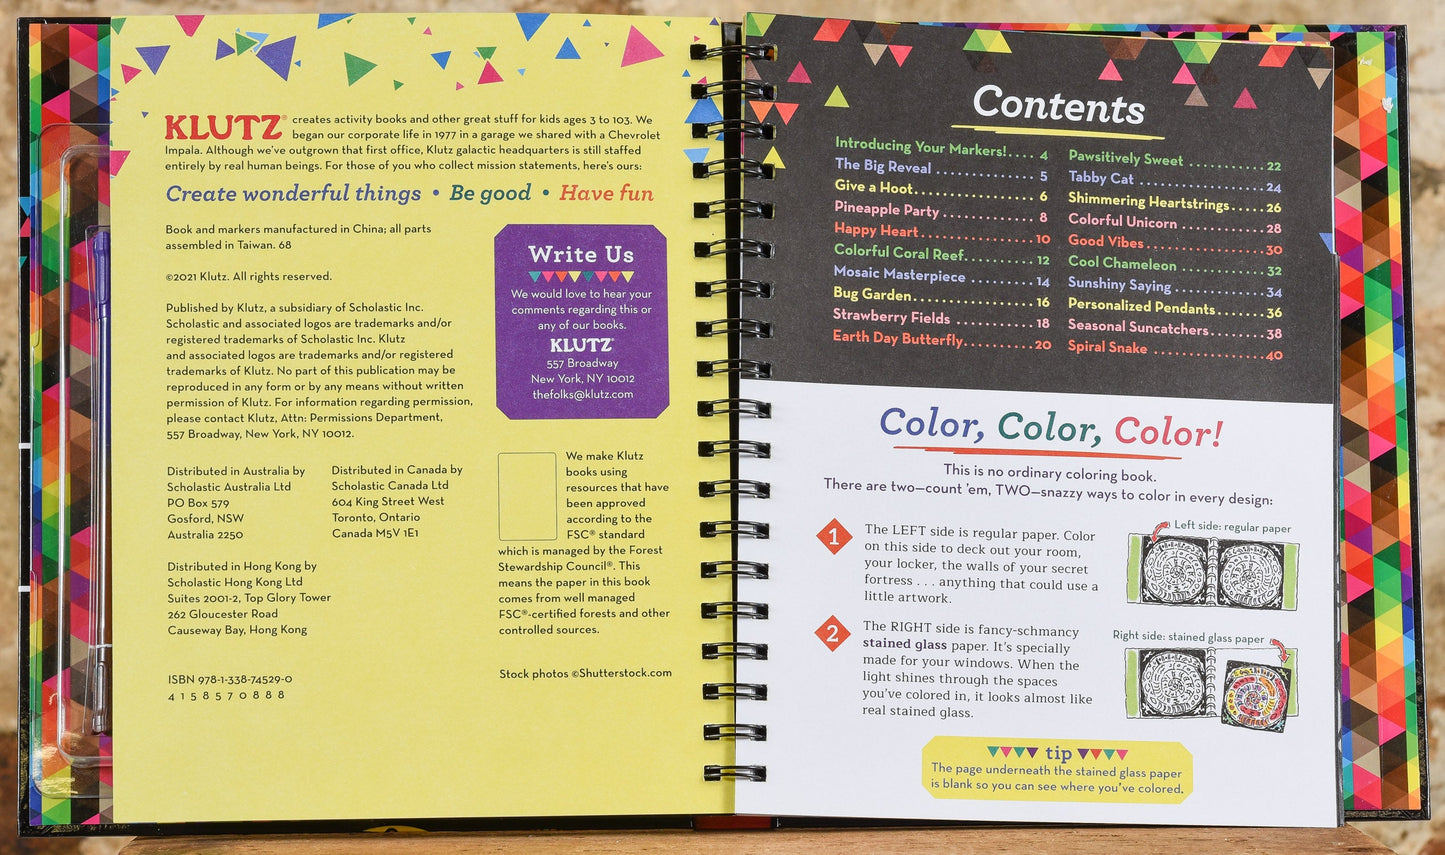 KLUTZ® creates activity books and other great stuff for kids ages 3 to 103. We
began our corporate life in 1977 in a garage we shared with a Chevrolet
Impala. Although we've outgrown that first office, Klutz galactic headquarters is still staffed
entirely by real human beings. For those of you who collect mission statements, here's ours:
Create wonderful things • Be good • Have fun
Book and markers manufactured in China; all parts
assembled in Taiwan. 68
©2021 Klutz. All rights reserved.
Published by Klutz, a subsidiary of Scholastic Inc.
Scholastic and associated logos are trademarks and/or
registered trademarks of Scholastic Inc. Klutz
and associated logos are trademarks and/or registered
trademarks of Klutz. No part of this publication may be
reproduced in any form or by any means without written
permission of Klutz. For information regarding permission,
please contact Klutz, Attn: Permissions Department,
557 Broadway, New York, NY 10012.
Write Us
We would love to hear your
comments regarding this or
any of our books.
KLUTZ®
557 Broadway
New York, NY 10012
thefolks@klutz.com
Distributed in Australia by
Scholastic Australia Ltd
PO Box 579
Gosford, NSW
Australia 2250
Distributed in Canada by
Scholastic Canada Ltd
604 King Street West
Toronto, Ontario
Canada M5V 1E1
Distributed in Hong Kong by
Scholastic Hong Kong Ltd
Suites 2001-2, Top Glory Tower
262 Gloucester Road
Causeway Bay, Hong Kong
We make Klutz
books using
resources that have
been approved
according to the
FSC® standard
which is managed by the Forest
Stewardship Council®. This
means the paper in this book
comes from well managed
FSC®-certified forests and other
controlled sources.
ISBN 978-1-338-74529-0
4 1 5 8 5 7 0 8 8 8
Stock photos ©Shutterstock.com
Contents
Introducing Your Markers!.... 4
The Big Reveal ............... 5
Give a Hoot................... 6
Pineapple Party .............. 8
Happy Heart .................. 10
Colorful Coral Reef........... 12
Mosaic Masterpiece ........... 14
Bug Garden.................... 16
Strawberry Fields ............ 18
Earth Day Butterfly........... 20
Pawsitively Sweet ............ 22
Tabby Cat .................... 24
Shimmering Heartstrings..... 26
Colorful Unicorn ............. 28
Good Vibes ................... 30
Cool Chameleon ............... 32
Sunshiny Saying .............. 34
Personalized Pendants........ 36
Seasonal Suncatchers......... 38
Spiral Snake ................. 40
Color, Color, Color!
This is no ordinary coloring book.
There are two—count 'em, TWO—snazzy ways to color in every design:
1
The LEFT side is regular paper. Color
on this side to deck out your room,
your locker, the walls of your secret
fortress . . . anything that could use a
little artwork.
Left side: regular paper
2
The RIGHT side is fancy-schmancy
stained glass paper. It's specially
made for your windows. When the
light shines through the spaces
you've colored in, it looks almost like
real stained glass.
Right side: stained glass paper
tip
The page underneath the stained glass paper
is blank so you can see where you've colored.